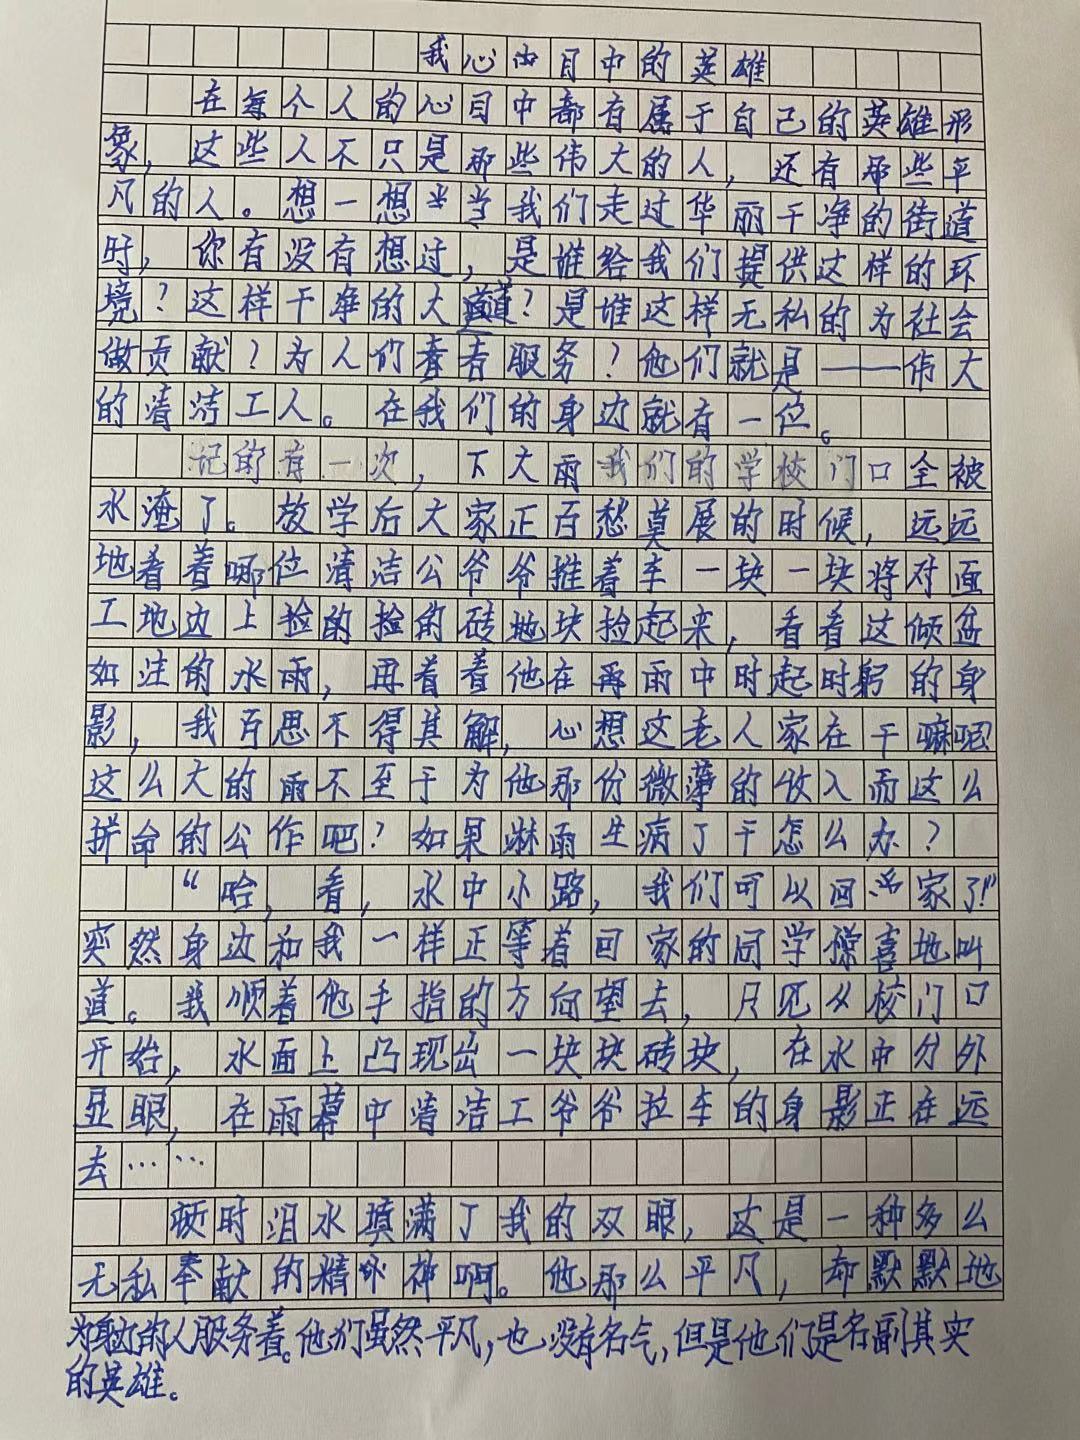 我心中目中的英雄
在每个人的心目中都有属于自己的英雄形
象，这些人不只是那些伟大的人，还有那些平
凡的人。想一想当当我们走过华丽干净的街道
时，你有没有想过，是谁给我们提供这样的环
境？这样干净的大道？是谁这样无私的为社会
做贡献？为人们奉着服务？他们就是——伟大
的清洁工人。在我们的身边就有一位。
记的有一次，下大雨我们的学校门口全被
水淹了。放学后大家正百愁莫展的时候，远远
地看着哪位清洁公爷爷推着车一块一块将对面
工地边上捡的捡的砖地块捡起来，看看这倾盆
如注的水雨，再看着他在再雨中时起时躬的身
影，我百思不得其解，心想这老人家在干嘛呢
这么大的雨不至于为他那份微薄的收入而这么
拼命的公作吧？如果淋雨生病了干怎么办？
“哈，看，水中小路，我们可以回家了！”
突然身边和我一样正等着回家的同学惊喜地叫
道。我顺着他手指的方向望去，只见从校门口
开始，水面上凸现出一块块砖块，在水中分外
显眼，在雨幕中清洁工爷爷拉车的身影正在远
去……
顿时泪水填满了我的双眼，这是一种多么
无私奉献的精神啊。他那么平凡，却默默地
为身边的人服务着。他们虽然平凡，也没有名气，但是他们是名副其实
的英雄。